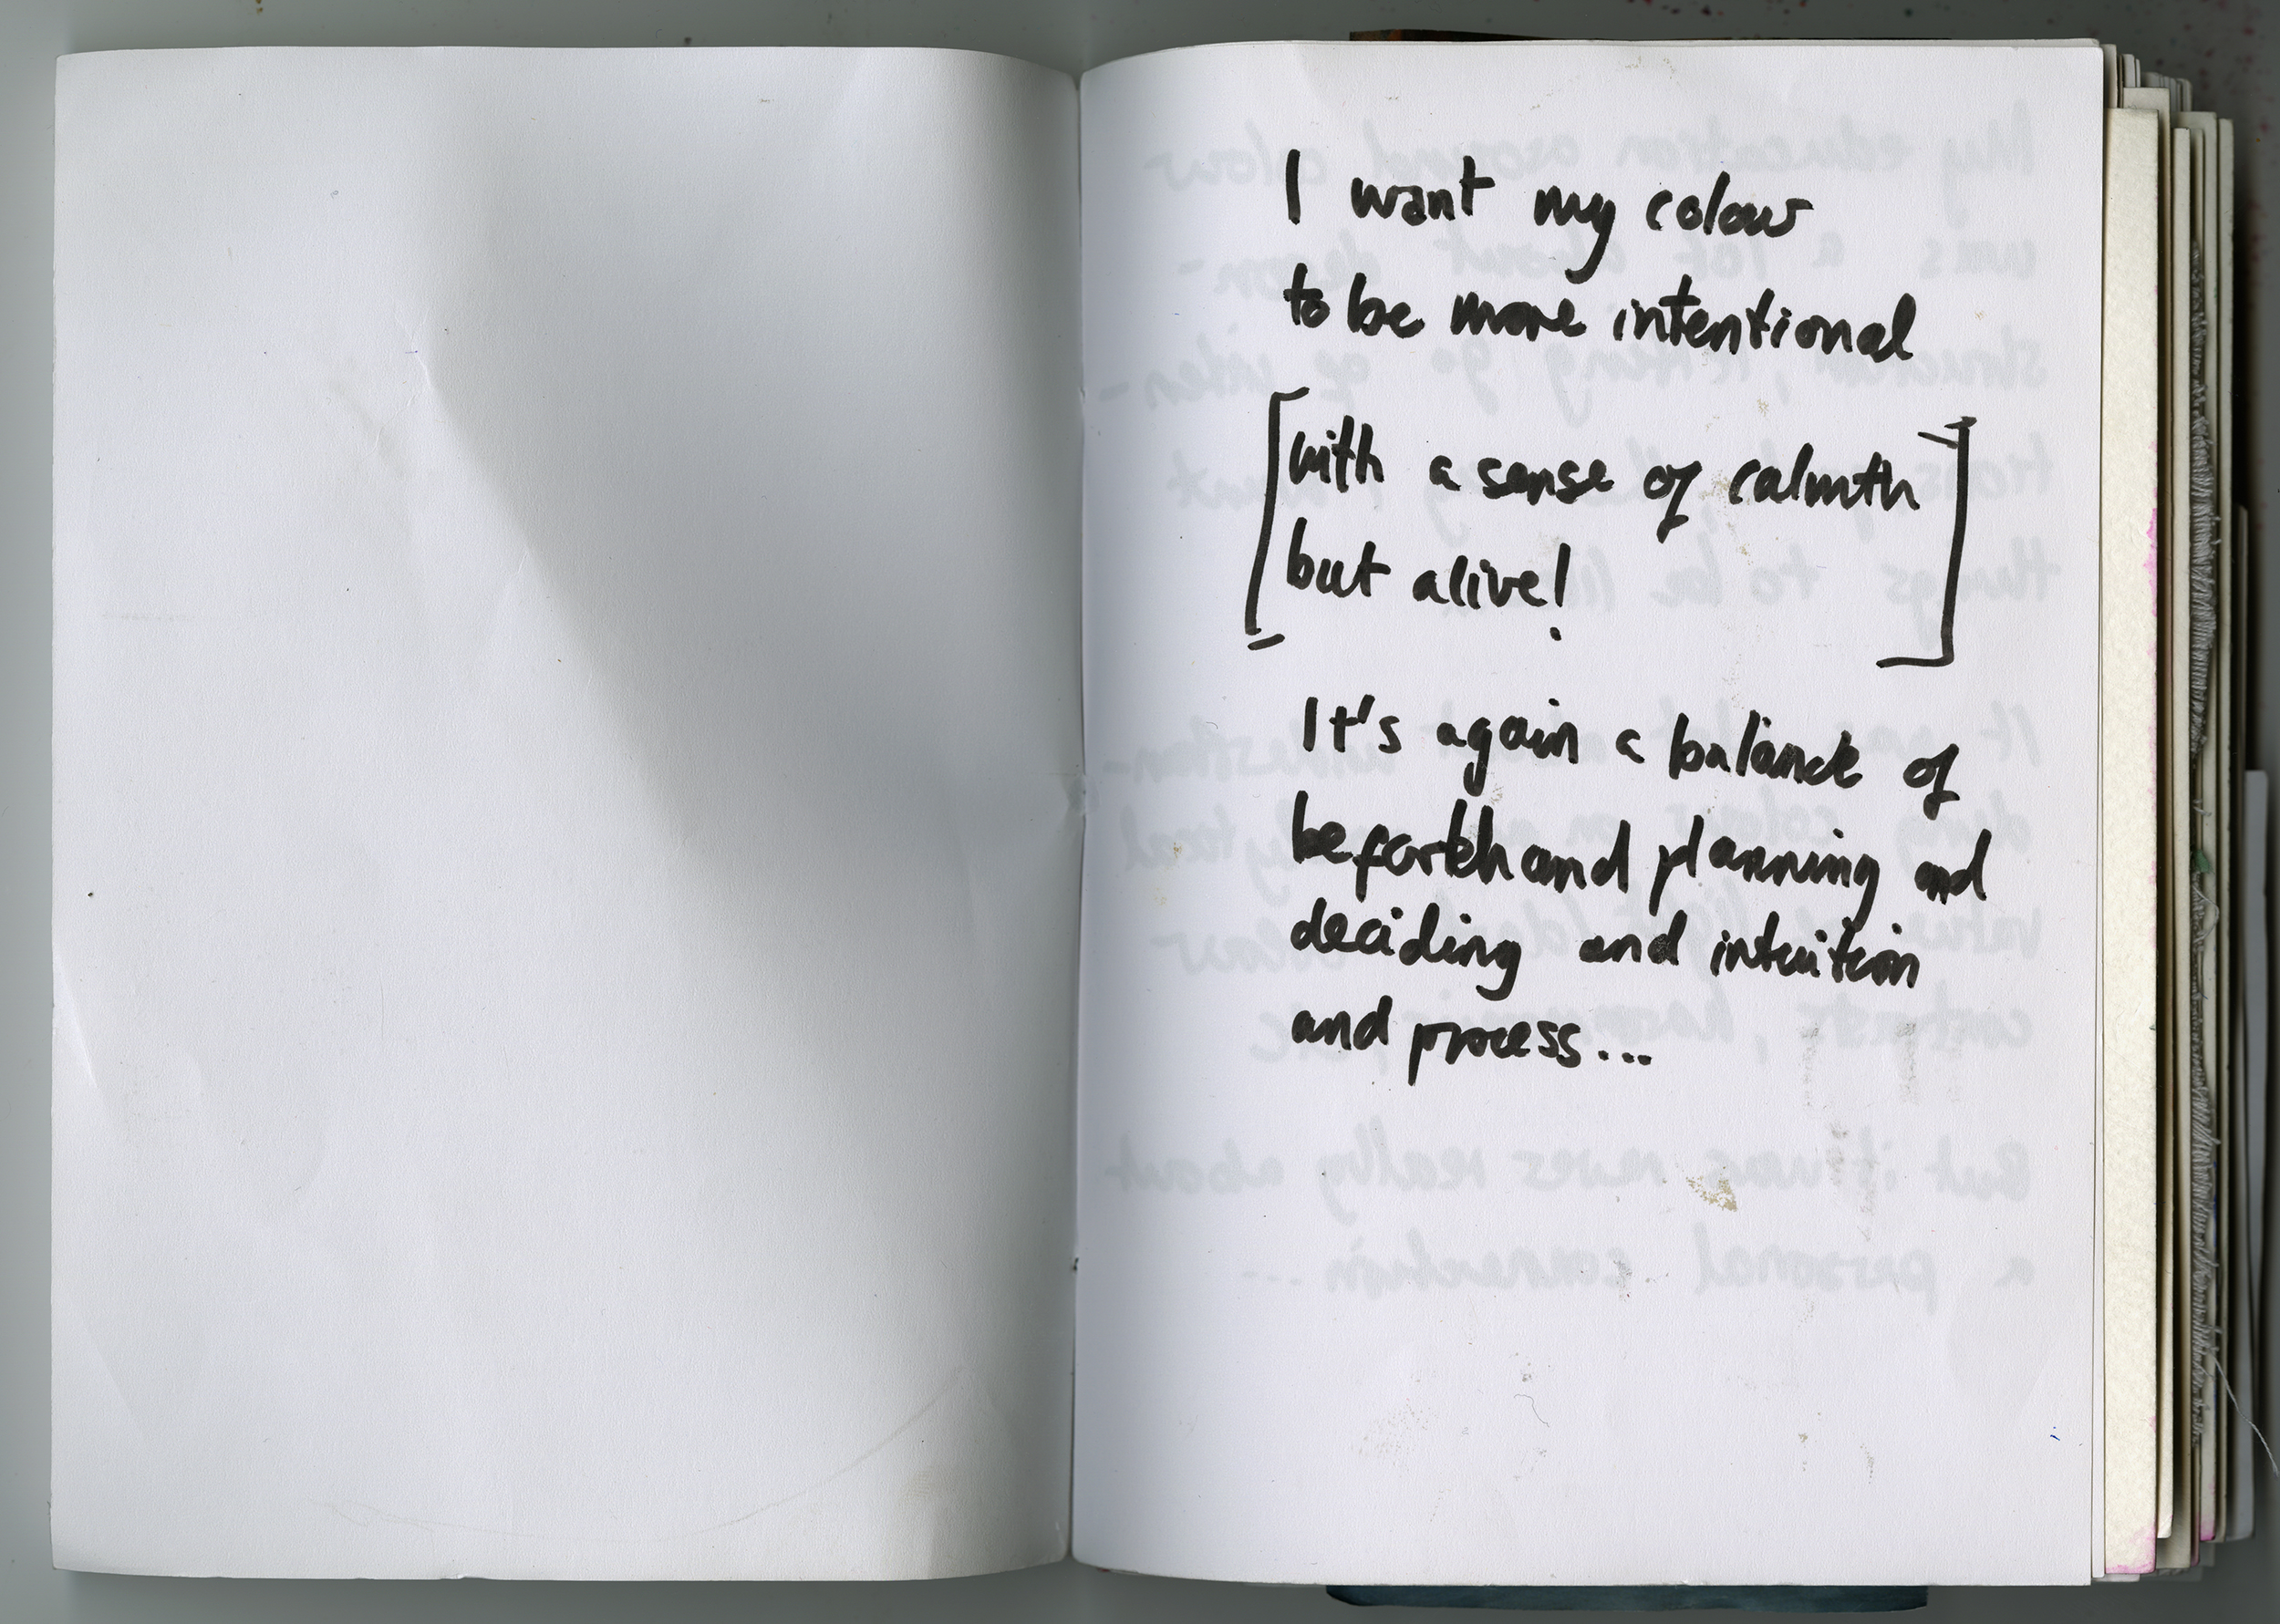 I want my colour
to be more intentional
[with a sense of calmth
but alive!]
It's again a balance of
beforehand planning and
deciding and intuition
and process...